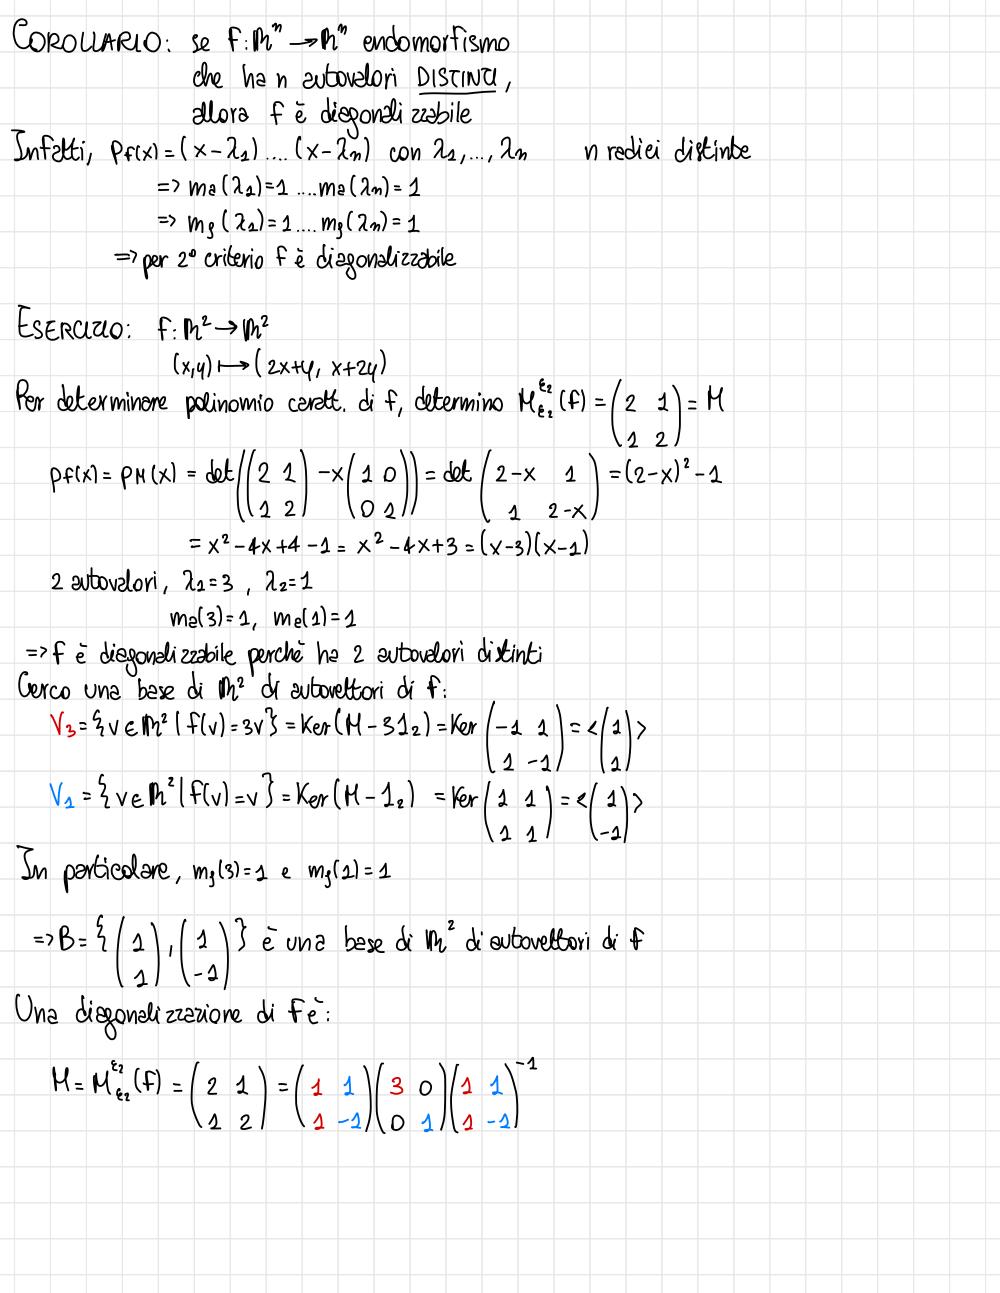 COROLLARIO: se f: ℝⁿ → ℝⁿ endomorfismo
che ha n autovalori DISTINTI,
allora f è diagonalizzabile
Infatti, pf(x) = (x-λ₁)....(x-λn) con λ₁,..., λn n radici distinte
=> ma(λ₁)=1 ....ma(λn)=1
=> mg(λ₁)=1....mg(λn)=1
=> per 2° criterio f è diagonalizzabile
ESERCIZIO: f: ℝ² → ℝ²
(x,y) ↦ (2x+y, x+2y)
Per determinare polinomio caratt. di f, determino M^{ε₂}_{ε₂}(f) = (2 1; 1 2) = M
pf(x) = pM(x) = det((2 1; 1 2) - x(1 0; 0 1)) = det(2-x 1; 1 2-x) = (2-x)² - 1
= x² - 4x + 4 - 1 = x² - 4x + 3 = (x-3)(x-1)
2 autovalori, λ₁=3, λ₂=1
ma(3)=1, ma(1)=1
=> f è diagonalizzabile perchè ha 2 autovalori distinti
Cerco una base di ℝ² di autovettori di f:
V₃ = {v∈ℝ² | f(v)=3v} = Ker(M-31₂) = Ker(-1 1; 1 -1) = <(1; 1)>
V₁ = {v∈ℝ² | f(v)=v} = Ker(M-1₂) = Ker(1 1; 1 1) = <(1; -1)>
In particolare, mg(3)=1 e mg(1)=1
=> B = {(1; 1), (1; -1)} è una base di ℝ² di autovettori di f
Una diagonalizzazione di f è:
M = M^{ε₂}_{ε₂}(f) = (2 1; 1 2) = (1 1; 1 -1)(3 0; 0 1)(1 1; 1 -1)⁻¹